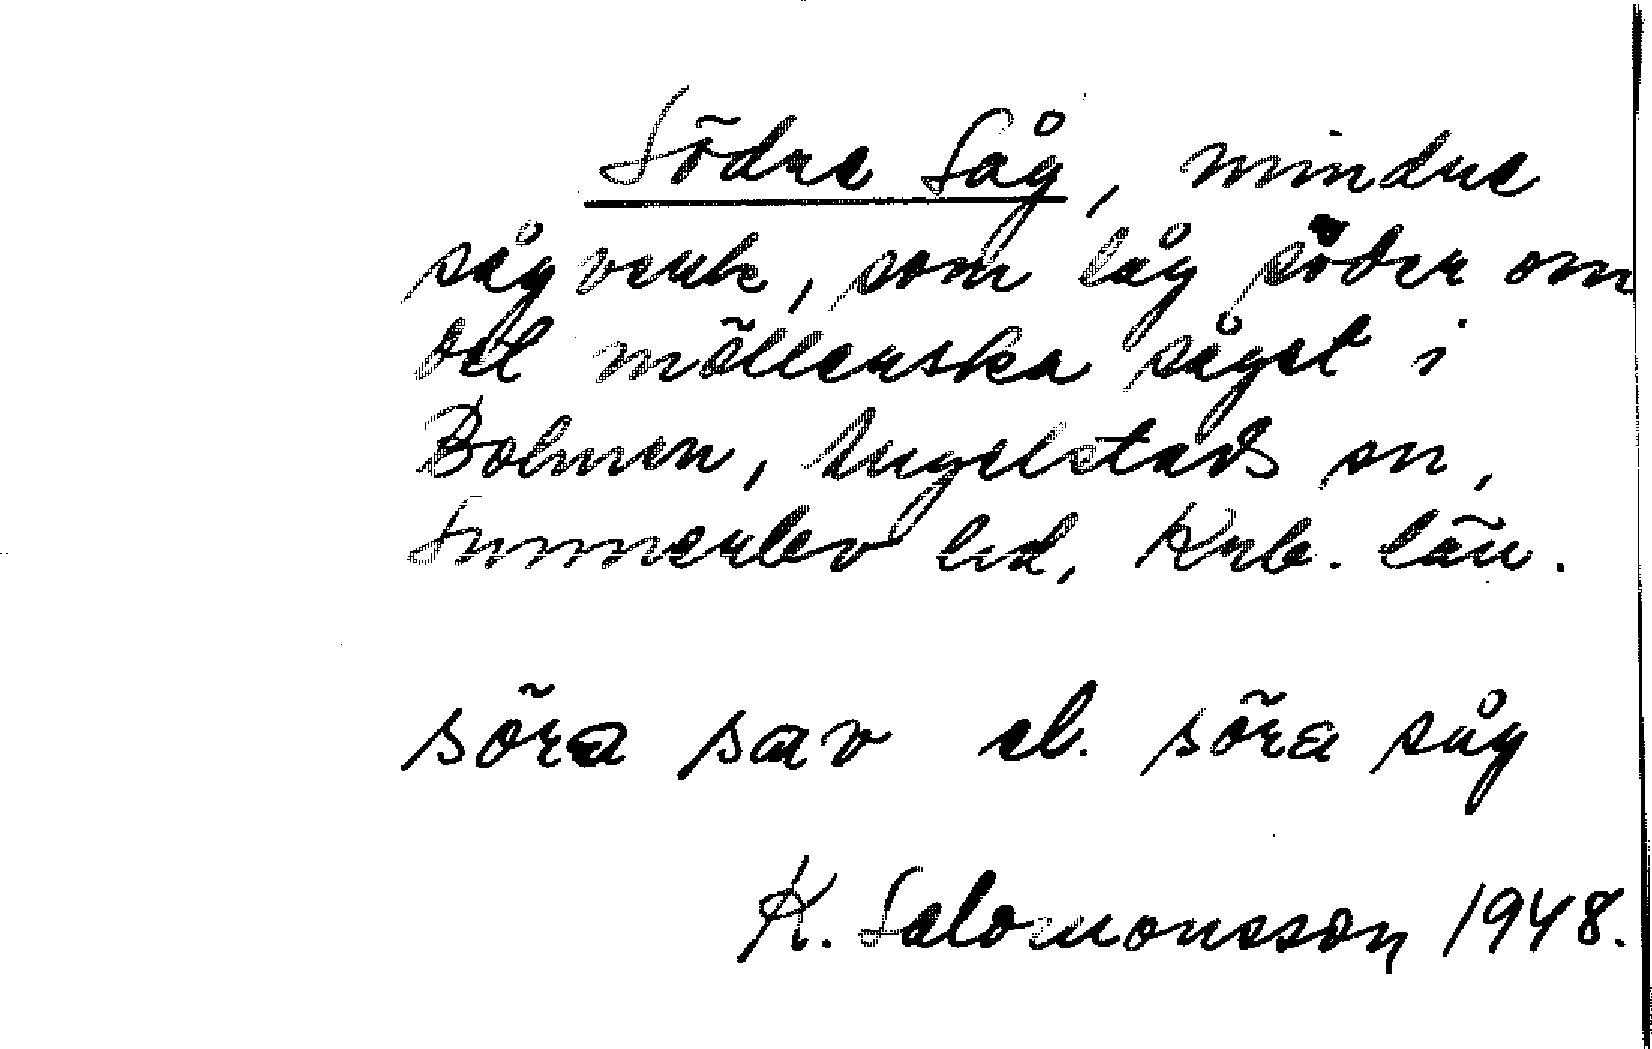 Södra Såg, mindre
sågverk, som låg söder om
det möllerska såget i
Bolmen, Angelstads sn,
Sunnerbo hd, Krb. län.
söra sav el. söra såg
K. Salomonsson 1948.